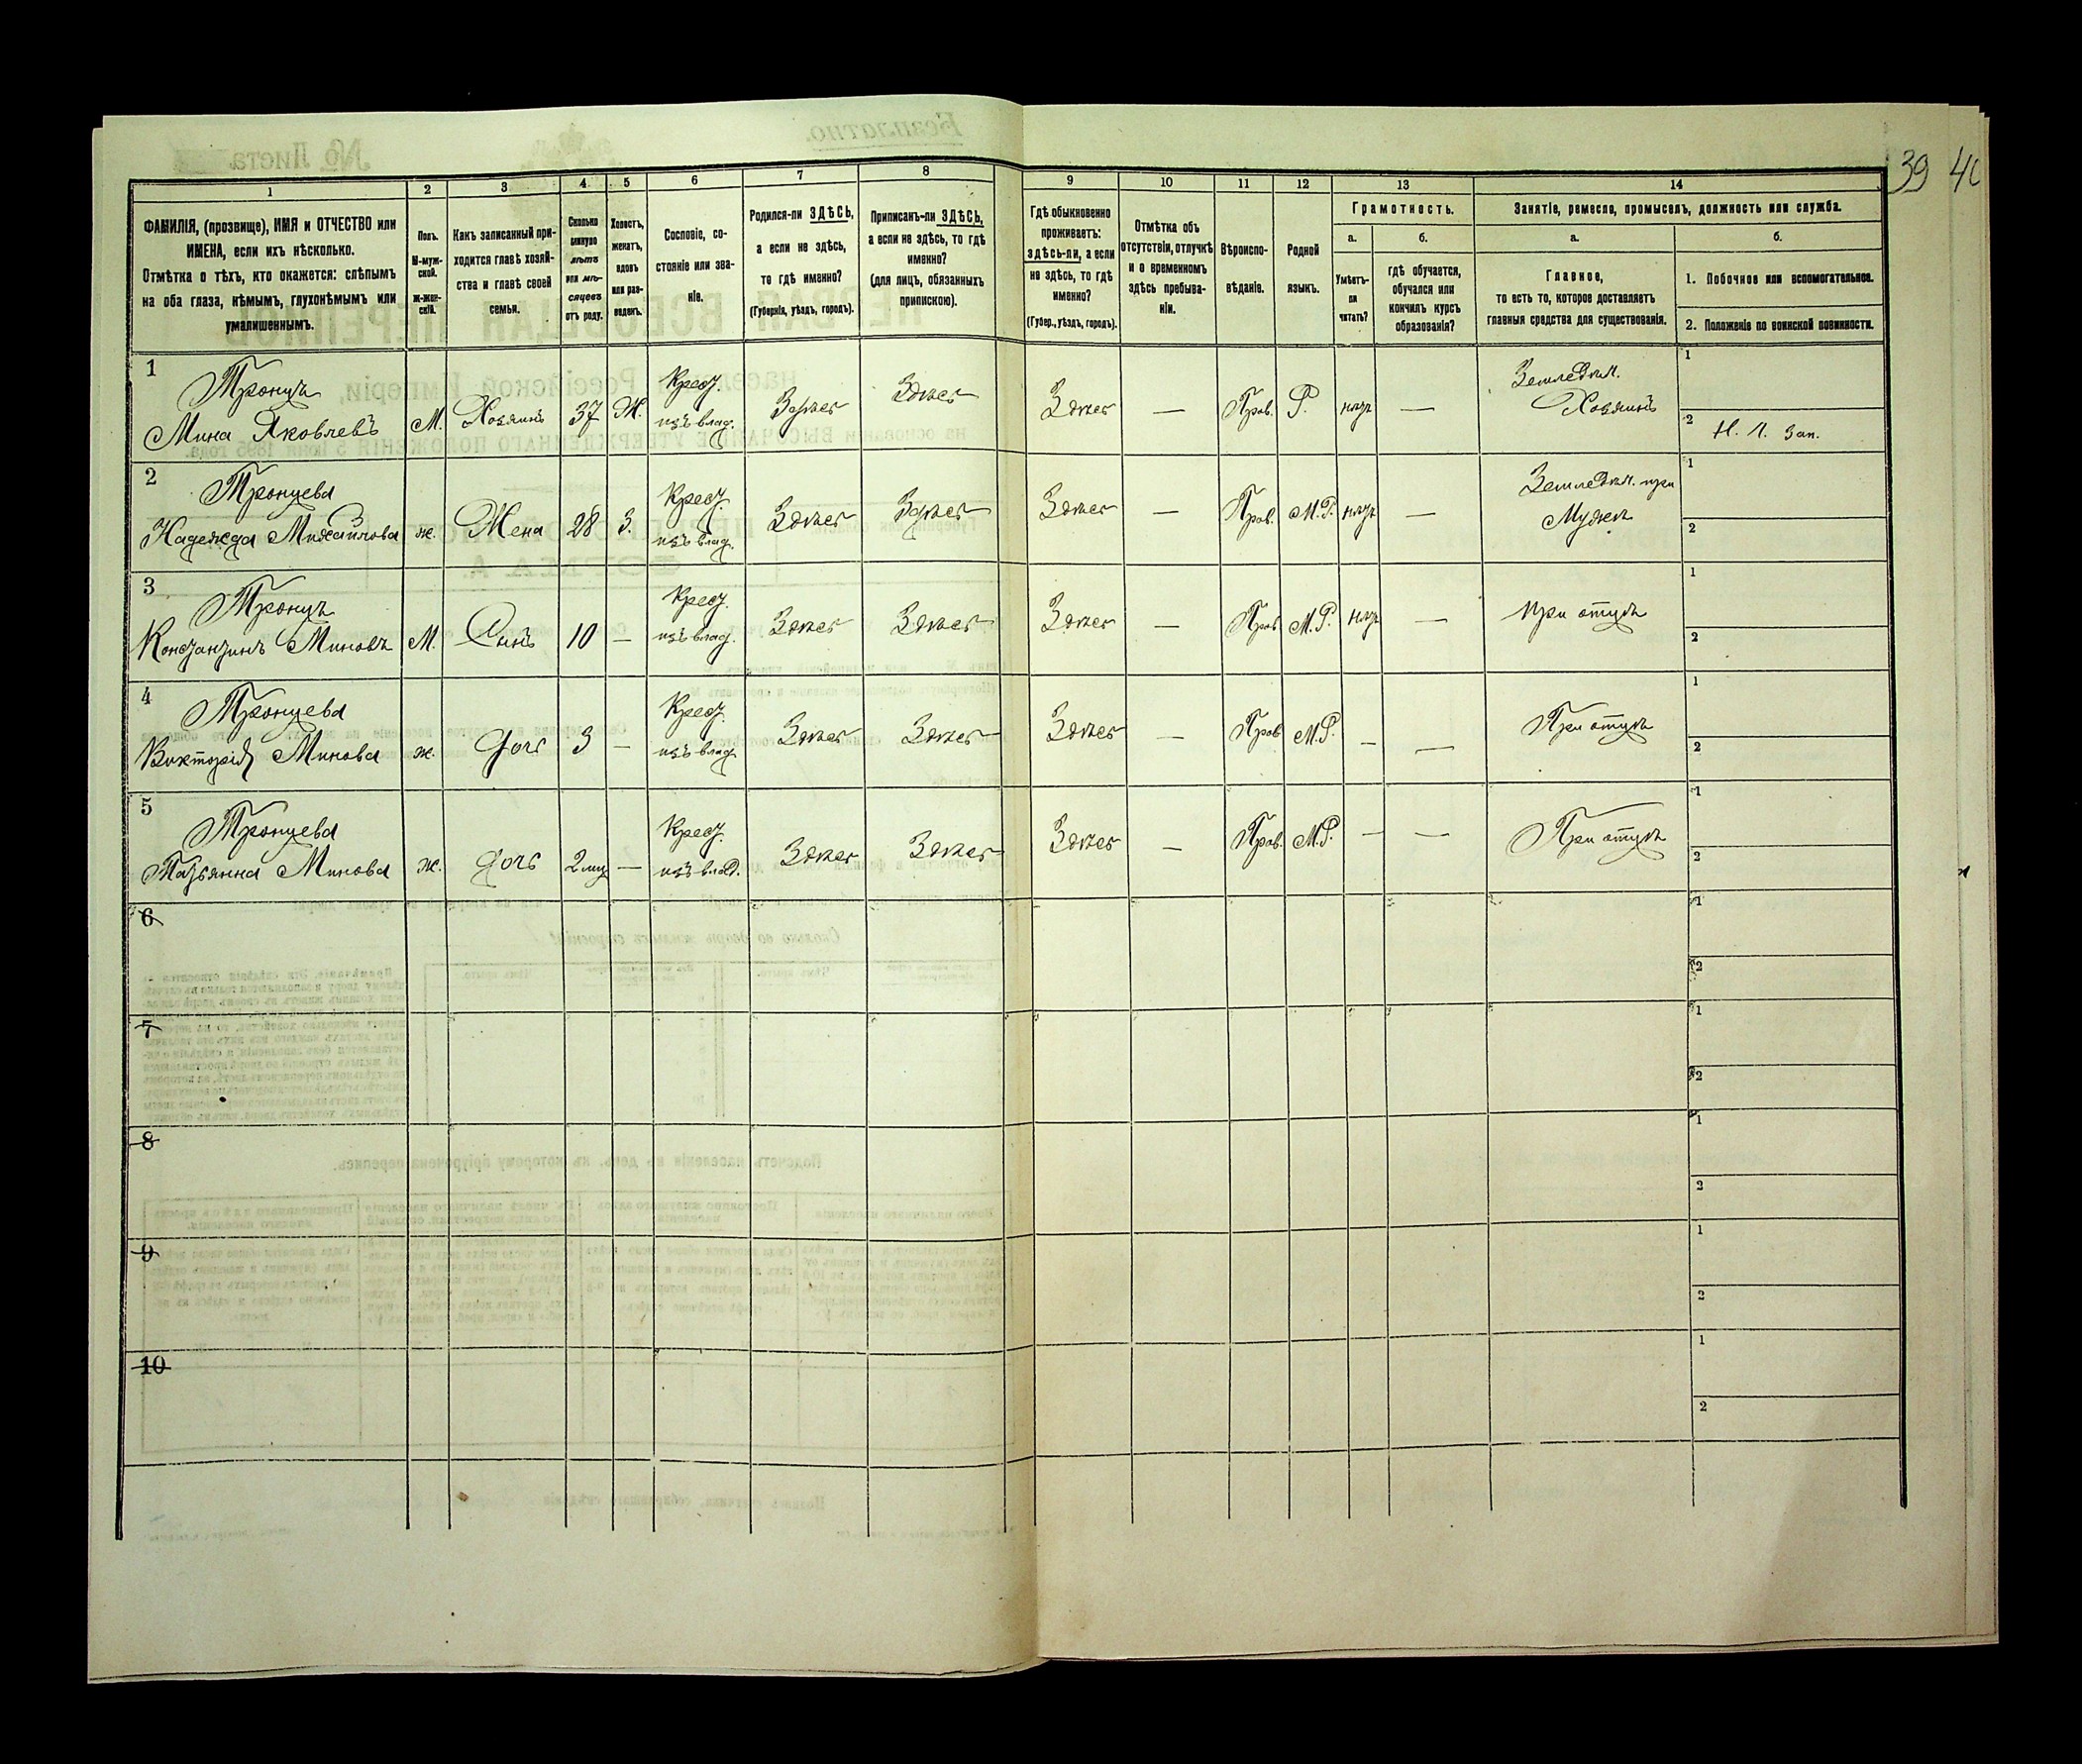 39 40
1 2 3 4 5 6 7 8 9 10 11 12 13 14
ФАМИЛІЯ, (прозвище), ИМЯ и ОТЧЕСТВО или
ИМЕНА, если ихъ нѣсколько.
Отмѣтка о тѣхъ, кто окажется: слѣпымъ
на оба глаза, нѣмымъ, глухонѣмымъ или
умалишеннымъ.
Полъ.
М-муж-
ской.
Ж-жен-
скій.
Какъ записанный при-
ходится главѣ хозяй-
ства и главѣ своей
семьи.
Сколько
минуло
лѣтъ
или мѣ-
сяцевъ
отъ роду.
Холостъ,
женатъ,
вдовъ
или раз-
веденъ.
Сословіе, со-
стояніе или зва-
ніе.
Родился-ли ЗДѢСЬ,
а если не здѣсь,
то гдѣ именно?
(Губернія, уѣздъ, городъ).
Приписанъ-ли ЗДѢСЬ,
а если не здѣсь, то гдѣ
именно?
(для лицъ, обязанныхъ
припискою).
Гдѣ обыкновенно
проживаетъ:
здѣсь-ли, а если
не здѣсь, то гдѣ
именно?
(Губер., уѣздъ, городъ).
Отмѣтка объ
отсутствіи, отлучкѣ
и о временномъ
здѣсь пребыва-
ніи.
Вѣроиспо-
вѣданіе.
Родной
языкъ.
Грамотность.
а.
Умѣетъ-
ли
читать?
б.
гдѣ обучается,
обучался или
кончилъ курсъ
образованія?
Занятіе, ремесло, промыселъ, должность или служба.
а.
Главное,
то есть то, которое доставляетъ
главныя средства для существованія.
б.
1. Побочное или вспомогательное.
2. Положеніе по воинской повинности.
1
Тронцъ
Мина Яковлевъ М. Хозяинъ 37 Ж. Крест. изъ влад. Здѣсь Здѣсь Здѣсь — Прав. Р. нѣтъ — Земледѣл.
Хозяинъ
1
2 Н. Л. Зап.
2
Тронцева
Надежда Михайлова ж. Жена 28 З. Крест. изъ влад. Здѣсь Здѣсь Здѣсь — Прав. М.Р. нѣтъ — Земледѣл. при
Мужѣ
1
2
3
Тронцъ
Константинъ Миновъ М. Сынъ 10 — Крест. изъ влад. Здѣсь Здѣсь Здѣсь — Прав М.Р. нѣтъ — При отцѣ
1
2
4
Тронцева
Викторія Минова ж. Дочь 3 — Крест. изъ влад. Здѣсь Здѣсь Здѣсь — Прав М.Р. — — При отцѣ
1
2
5
Тронцева
Татьянна Минова ж. Дочь 2 мц — Крест. изъ влад. Здѣсь Здѣсь Здѣсь — Прав. М.Р. — — При отцѣ
1
2
6
1
2
7
1
2
8
1
2
9
1
2
10
1
2